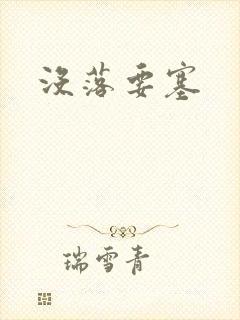 没落要塞
瑞雪青